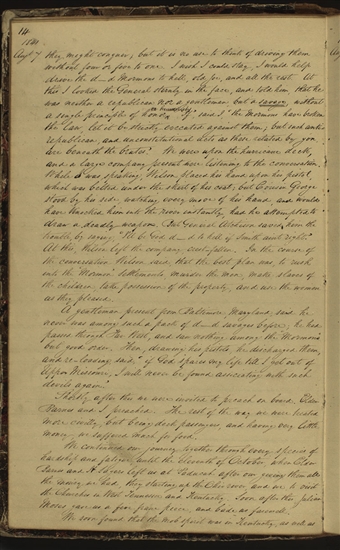 14
1840.
Augt. 7 they might conquer, but it is no use to think of driving them
without four or five to one. I wish I could stay, I would help
drive the d—d Mormons to hell, old Joe, and all the rest. At
this I looked the General sternly in the face, and told him that he
was neither a republican nor a gentleman but a savage, without
a single principle of honor or humanity. "If" said I "the Mormons have broken
the law, let it be strictly executed against them; but such anti-
republican, and unconstitutional acts as these related by you
are beneath the brute." We were upon the hurricane deck,
and a large company present were listening to the conversation.
While I was speaking, Wilson placed his hand upon his pistol
which was belted under the skirt of his coat; but Cousin George
stood by his side, watching every move of his hand, and would
have knocked him into the river instantly, had he attempted to
draw a deadly weapon. But General saved him the
trouble by saying "I'll be God d—d to hell if Smith aint right."
At this, Wilson left the company crestfallen. In the course of
the conversation Wilson said, that the best plan was, to rush
into the Mormon settlements, murder the men, make slaves of
the children, take possession of the property, and use the women
as they pleased.
A gentleman present from Baltimore, Maryland, said he
never was among such a pack of d—d savages before; he had
passed through Far West, and saw nothing among the Mormons
but good order. Then, drawing his pistols, he discharged them,
and re-loading said, "If God spares my life till I get out of
Upper Missouri, I will never be found associating with such
devils again."
Shortly after this we were invited to preach on board. Elder
and I preached. The rest of the way we were treated
more civilly; but being deck passengers, and having very little
money, we suffered much for food.
We continued our journey together through every species of
hardship and fatigue until the eleventh of October, when Elder
and H. Sagers left us at Paducah, after our giving them all
the money we had; they starting up the Ohio river, and we to visit
the Churches in West Tennessee and Kentucky. Soon after this Julian
Moses gave us a five franc piece, and bade us farewell.
We soon found that the mob spirit was in Kentucky, as well as